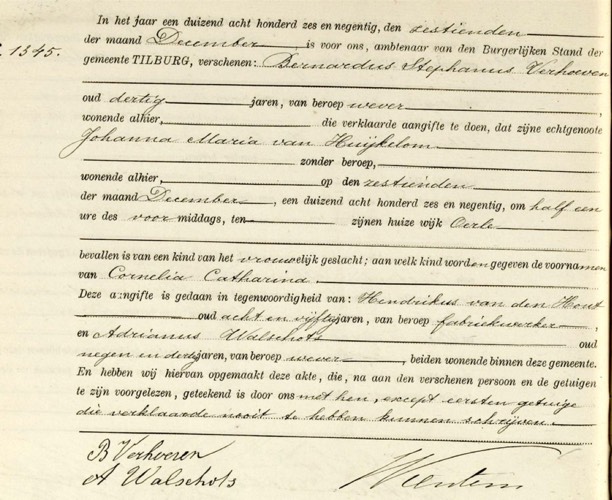 In het jaar een duizend acht honderd zes en negentig, den zestienden
1345.
der maand December, is voor ons, ambtenaar van den Burgerlijken Stand der
gemeente TILBURG, verschenen: Bernardus Stephanus Verhoeven
oud dertig jaren, van beroep wever,
wonende alhier, die verklaarde aangifte te doen, dat zijne echtgenoote
Johanna Maria van Huijkelom
zonder beroep,
wonende alhier, op den zestienden
der maand December, een duizend acht honderd zes en negentig, om half een
ure des voor middags, ten zijnen huize wijk Oerle
bevallen is van een kind van het vrouwelijk geslacht; aan welk kind worden gegeven de voornamen
van Cornelia Catharina.
Deze aangifte is gedaan in tegenwoordigheid van: Hendrikus van den Hout
oud acht en vijftig jaren, van beroep fabriekwerker,
en Adrianus Walschots oud
negen in dertig jaren, van beroep wever, beiden wonende binnen deze gemeente.
En hebben wij hiervan opgemaakt deze akte, die, na aan den verschenen persoon en de getuigen
te zijn voorgelezen, geteekend is door ons met hen, except eersten getuige
die verklaarde nooit te hebben kunnen schrijven.
B Verhoeven
A Walschots